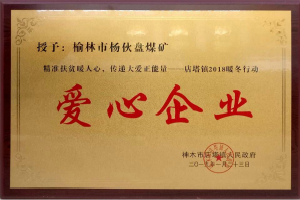 授予：榆林市杨伙盘煤矿
精准扶贫暖人心，传递大爱正能量——店塔镇2018暖冬行动
爱心企业
神木市店塔镇人民政府
二〇一八年一月二十三日